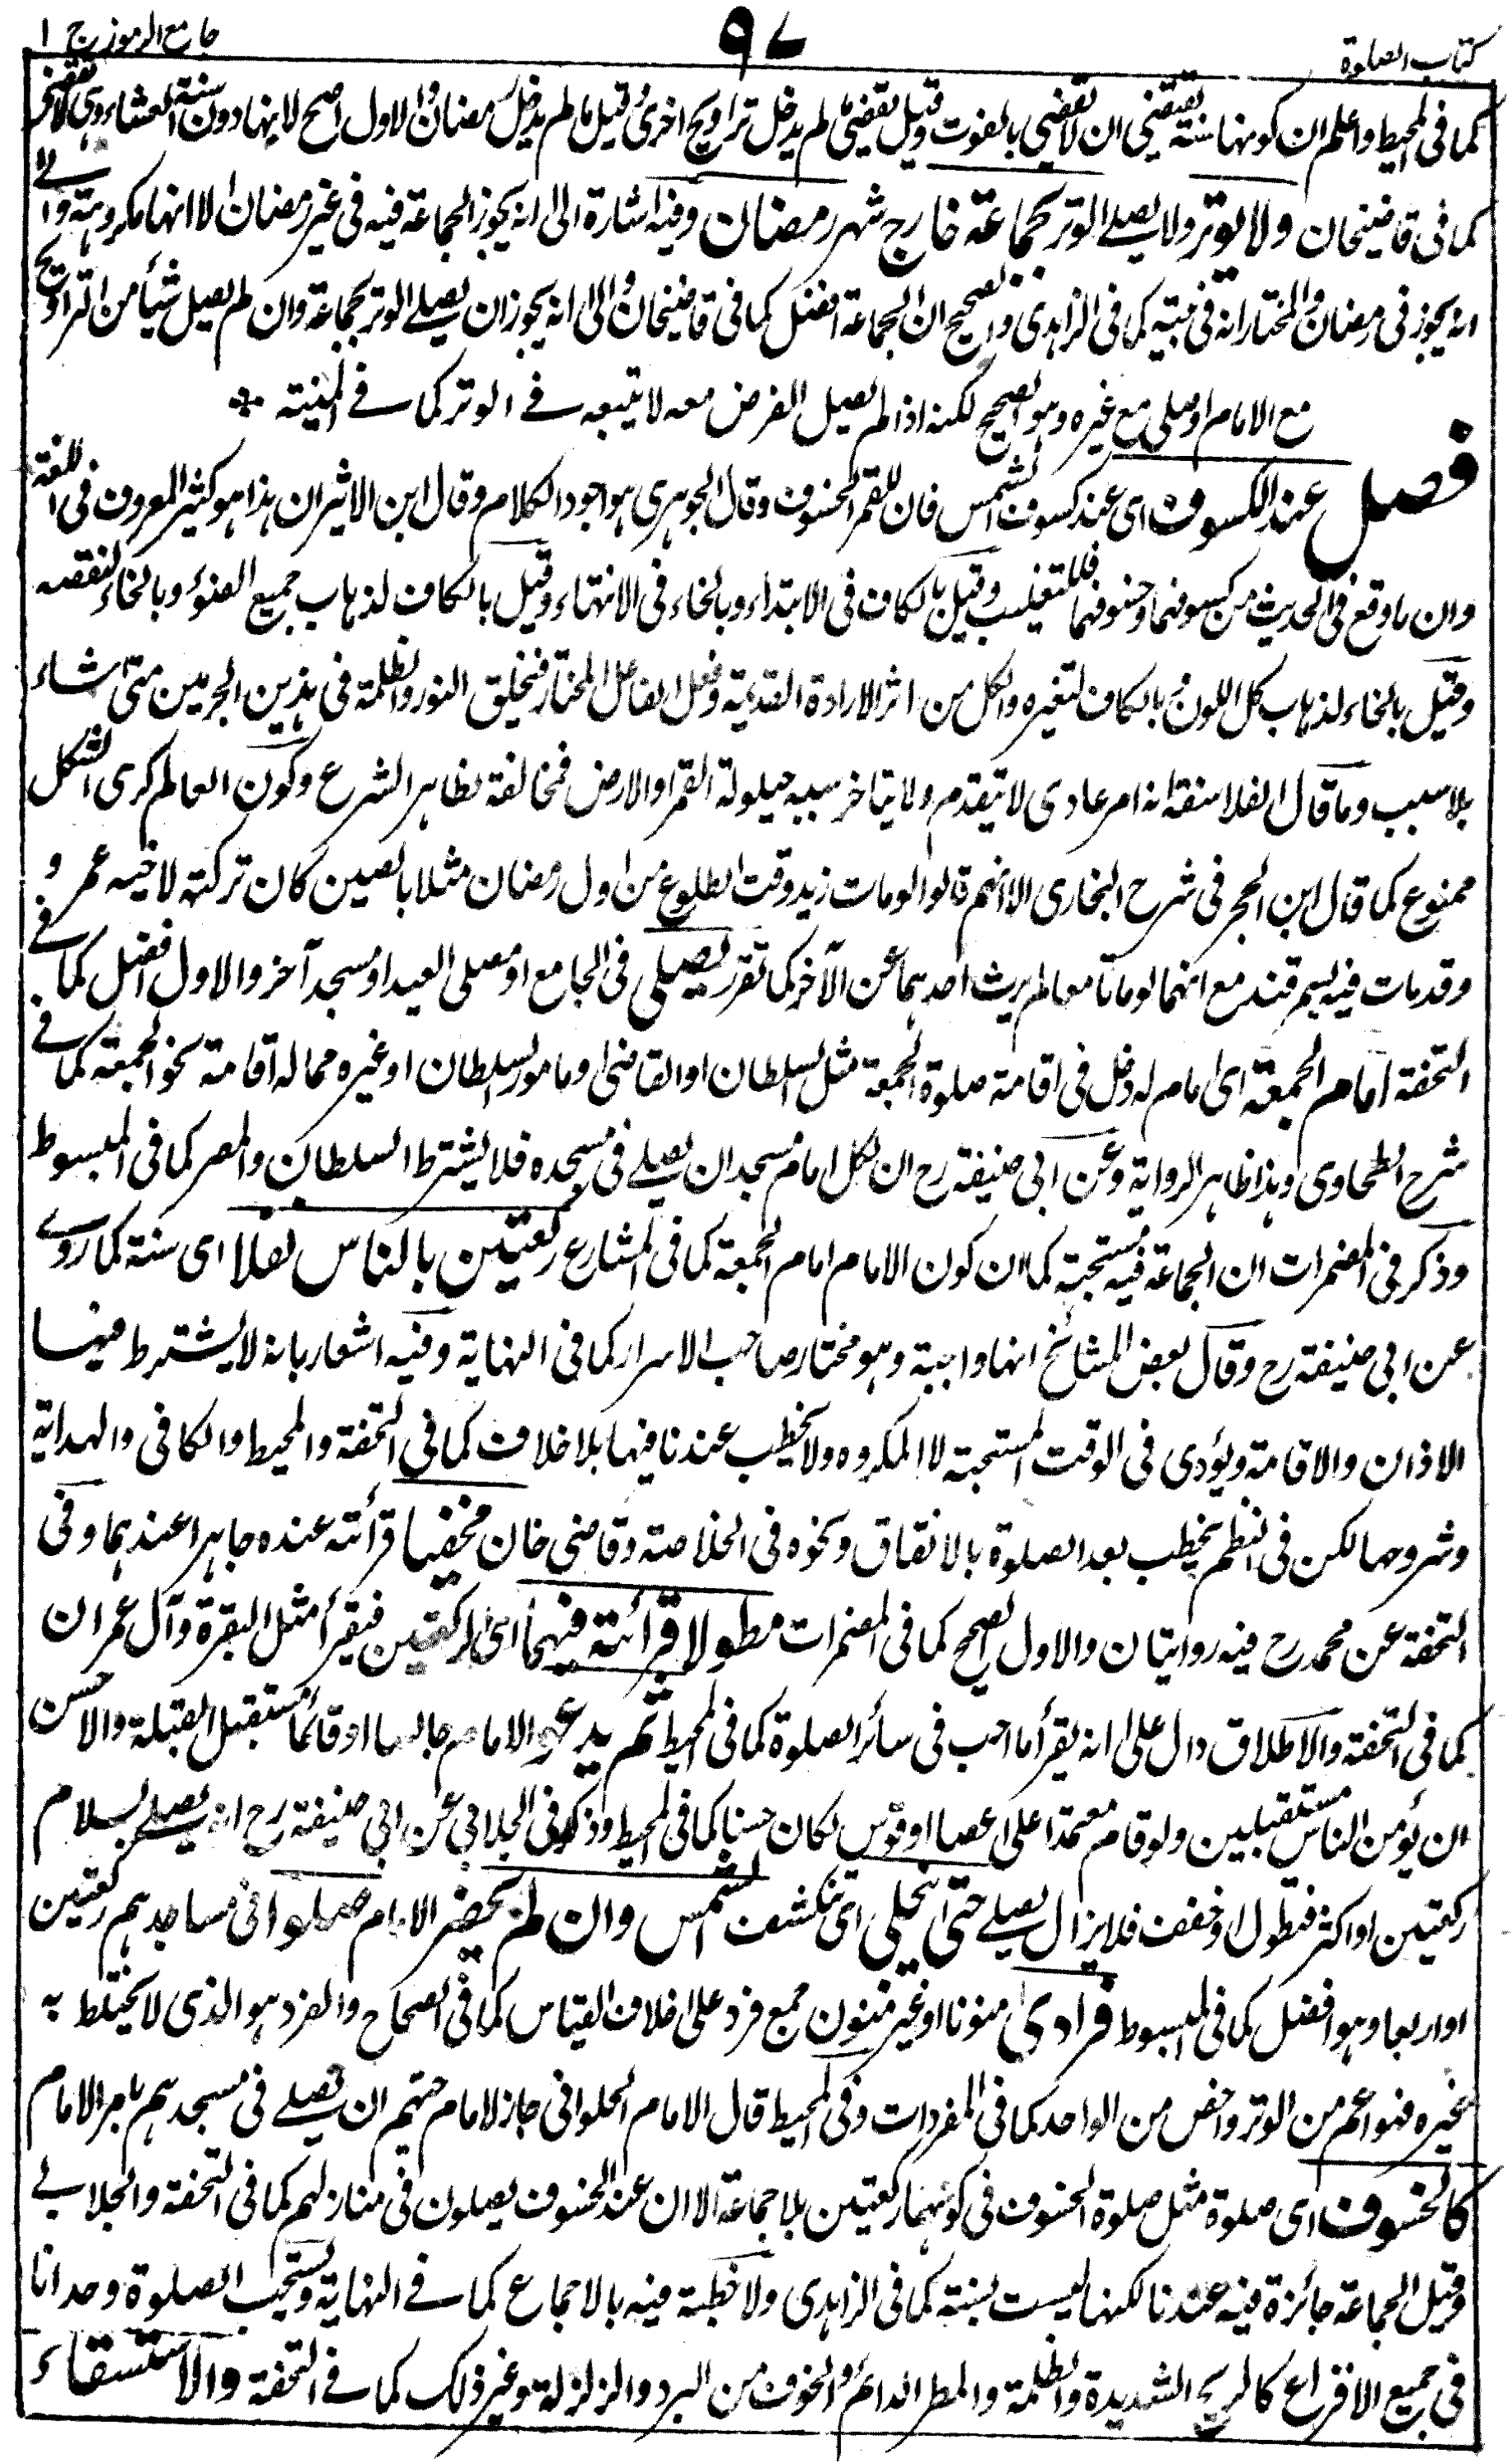 كتاب الصلوة
٩٧
جامع الرموز ج ١
كما فى المحيط واعلم ان كونها سنة يقتضى ان لا تقضى بالفوت وقيل يقضى ما لم يدخل تراويح اخرى وقيل ما لم يدخل رمضان والاول اصح لانها دون سنة العشاء وهى لا تقضى
كما فى قاضيخان ولا يوتر ولا يصلى الوتر بجماعة خارج شهر رمضان وفيه اشارة الى انه يجوز الجماعة فيه فى غير رمضان الا انها مكروهة والى
انه يجوز فى رمضان والمختار انه فى بيته كما فى الزاهدى والصحيح ان الجماعة افضل كما فى قاضيخان والى انه يجوز ان يصلى الوتر بجماعة وان لم يصل شيأ من التراويح
مع الامام او صلى مع غيره وهو الصحيح لكنه اذا لم يصل الفرض معه لا يتبعه فى الوتر كما فى المنية
فصل عند الكسوف اى عند كسوف الشمس فان للقمر الخسوف وقال الجوهرى هو اجود الكلام وقال ابن الاثير ان هذا هو كثير المعروف فى اللغة
وان ما وقع فى الحديث من كسوفهما وخسوفهما فللتغليب وقيل بالكاف فى الابتداء وبالخاء فى الانتهاء وقيل بالكاف لذهاب جميع الضوء وبالخاء لنقصه
وقيل بالخاء لذهاب كل اللون وبالكاف لتغيره والكل من اثر الارادة القديمة وفعل الفاعل المختار فيخلق النور والظلمة فى هذين الجرمين متى شاء
بلا سبب وما قال الفلاسفة انه امر عادى لا يتقدم ولا يتاخر سببه حيلولة القمر او الارض فمخالفة لظاهر الشرع وكون العالم كرى الشكل
ممنوع كما قال ابن الحجر فى شرح البخارى الا انهم قالوا لو مات زيد وقت الطلوع من اول رمضان مثلا بالصين كان تركته لاخيه عمرو
وقد مات فيه بسمرقند مع انهما لو ماتا معا لم يرث احدهما عن الآخر كما تقرر يصلى فى الجامع او مصلى العيد او مسجد آخر والاول افضل كما فى
التحفة امام الجمعة اى امام له دخل فى اقامة صلوة الجمعة مثل السلطان او القاضى او مامور السلطان او غيره مما له اقامة نحو الجمعة كما فى
شرح الطحاوى وهذا ظاهر الرواية وعن ابى حنيفة رح ان لكل امام مسجد ان يصلى فى مسجده فلا يشترط السلطان والمصر كما فى المبسوط
وذكر فى المضمرات ان الجماعة فيه مستحبة كما ان كون الامام امام الجمعة كما فى المشارع ركعتين بالناس نفلا اى سنة كما روى
عن ابى حنيفة رح وقال بعض المشائخ انها واجبة وهو مختار صاحب الاسرار كما فى النهاية وفيه اشعار بانه لا يشترط فيها
الاذان والاقامة ويؤدى فى الوقت المستحبة لا المكروه ولا يخطب عندنا فيها بلا خلاف كما فى التحفة والمحيط والكافى والهداية
وشروحها لكن فى النظم يخطب بعد الصلوة بالاتفاق ونحوه فى الخلاصة وقاضى خان مخفيا قرأته عنده جاهرا عندهما وفى
التحفة عن محمد رح فيه روايتان والاول الصحيح كما فى المضمرات مطولا قرأئته فيهما اى الركعتين فيقرأ مثل البقرة وآل عمران
كما فى التحفة والاطلاق دال على انه يقرأ ما احب فى سائر الصلوة كما فى المحيط ثم يدعو الامام جالسا او قائما مستقبل القبلة والاحسن
ان يؤمن الناس مستقبلين ولو قام معتمدا على عصا او قوس لكان حسنا كما فى المحيط وذكر فى الجلابى عن ابى حنيفة رح انه يصلى بسلام
ركعتين او اكثر فتطول او خفف فلا يزال يصلى حتى تنجلى اى تنكشف الشمس وان لم يحضر الامام صلوا فى مساجدهم ركعتين
او اربعا وهو افضل كما فى المبسوط فرادى منونا او غير منون جمع فرد على خلاف القياس كما فى الصحاح والفرد هو الذى لا يختلط به
غيره فهو اعم من الوتر واخص من الواحد كما فى المفردات وفى المحيط قال الامام الحلوانى جاز لامام حيهم ان يصلى فى مسجدهم بامر الامام
كالخسوف اى صلوة مثل صلوة الخسوف فى كونهما ركعتين بلا جماعة الا ان عند الخسوف يصلون فى منازلهم كما فى التحفة والجلابى
وقيل الجماعة جائزة فيه عندنا لكنها ليست بسنة كما فى الزاهدى ولا خطبة فيه بالاجماع كما فى النهاية ويستحب الصلوة وحدانا
فى جميع الافزاع كالريح الشديدة والظلمة والمطر الدائم والخوف من البرد والزلزلة وغير ذلك كما فى التحفة والاستسقاء